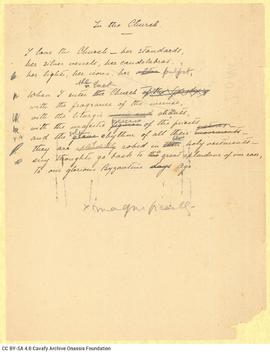 In the Church.
I love the Church — her standards,
her silver vessels, her candelabras,
her lights, her icons, her pulpit.
When I enter the Church
with the fragrance of the incense,
with the liturgic chants,
with the majestic of the priests
and the rhythm of all their
they are robed in holy vestments—
my thoughts go back to great splendour of our race,
to our glorious Byzantine days ago
x magnificently
CC BY-SA 4.0 Cavafy Archive Onassis Foundation